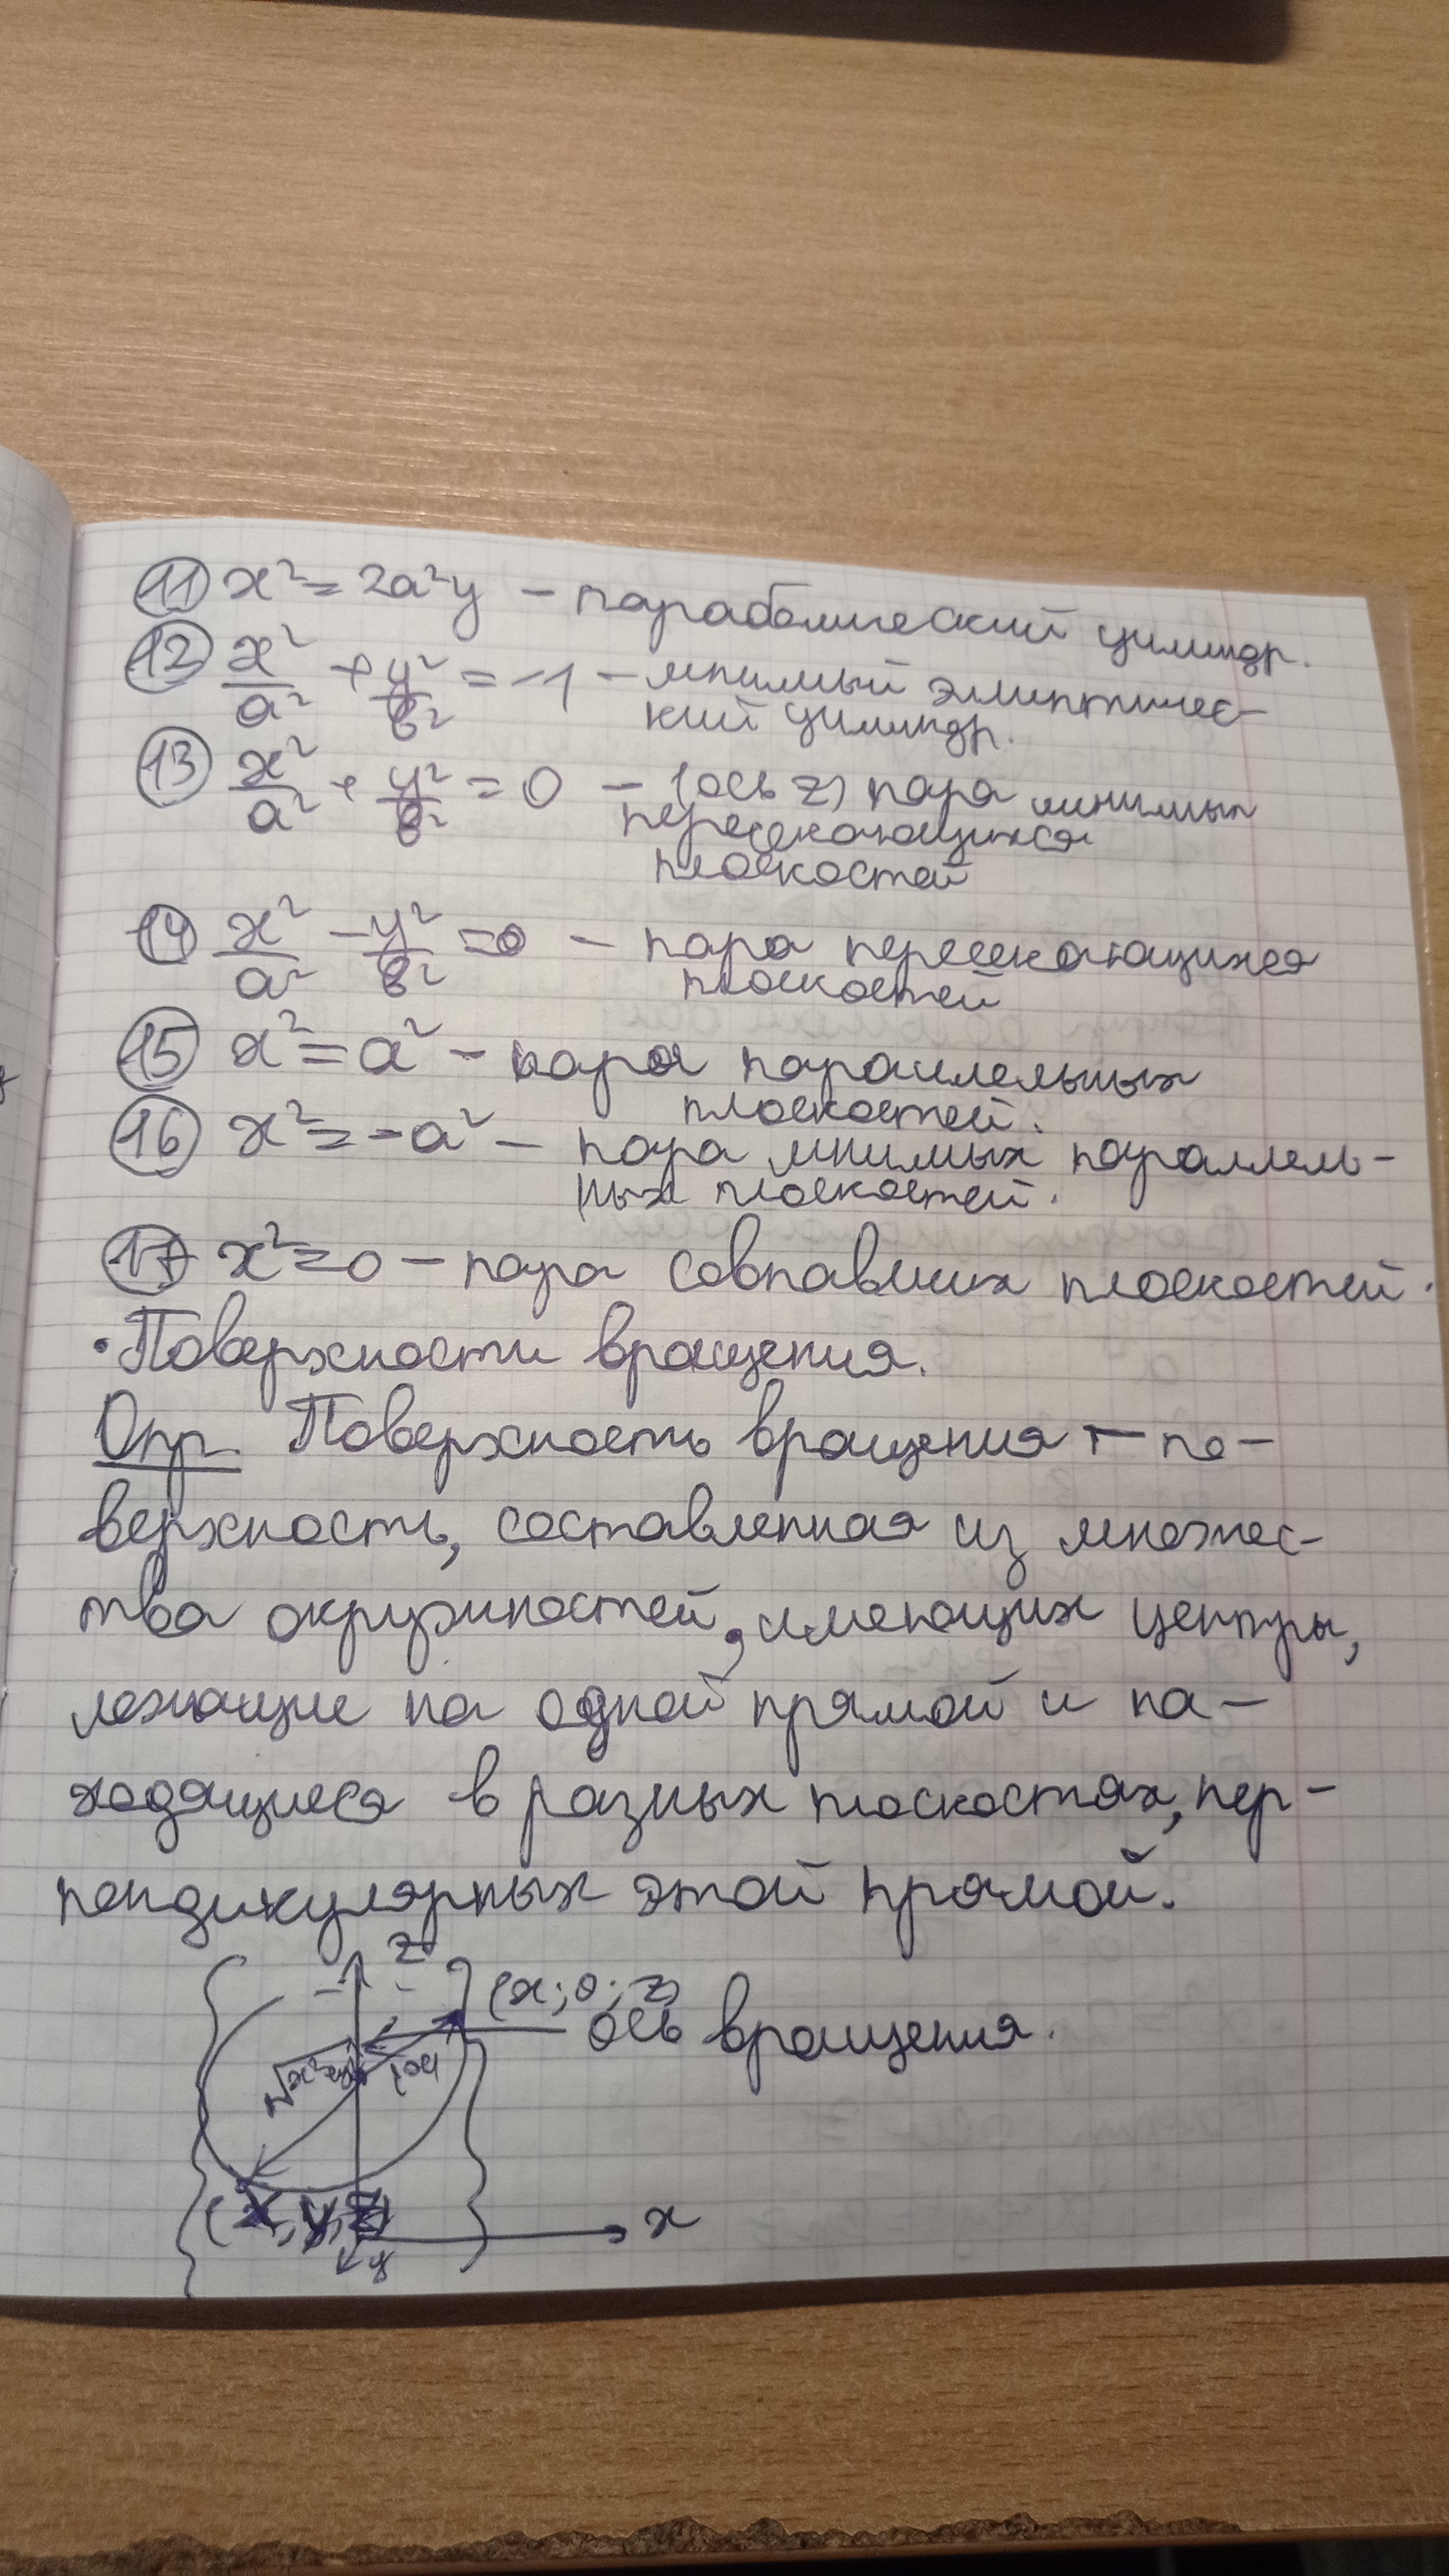 11 x² = 2a²y – параболический цилиндр.
12 x²/a² + y²/b² = -1 – мнимый эллиптичес-
кий цилиндр.
13 x²/a² + y²/b² = 0 – (ось z) пара мнимых
пересекающихся
плоскостей
14 x²/a² - y²/b² = 0 – пара пересекающихся
плоскостей
15 x² = a² – пара параллельных
плоскостей.
16 x² = -a² – пара мнимых параллель-
ных плоскостей.
17 x² = 0 – пара совпавших плоскостей.
• Поверхности вращения.
Опр. Поверхность вращения – по-
верхность, составленная из множес-
тва окружностей, имеющих центры,
лежащие на одной прямой и на-
ходящиеся в разных плоскостях, пер-
пендикулярных этой прямой.
z
(x; 0; z)
ось вращения.
(x, y, z)
x
y